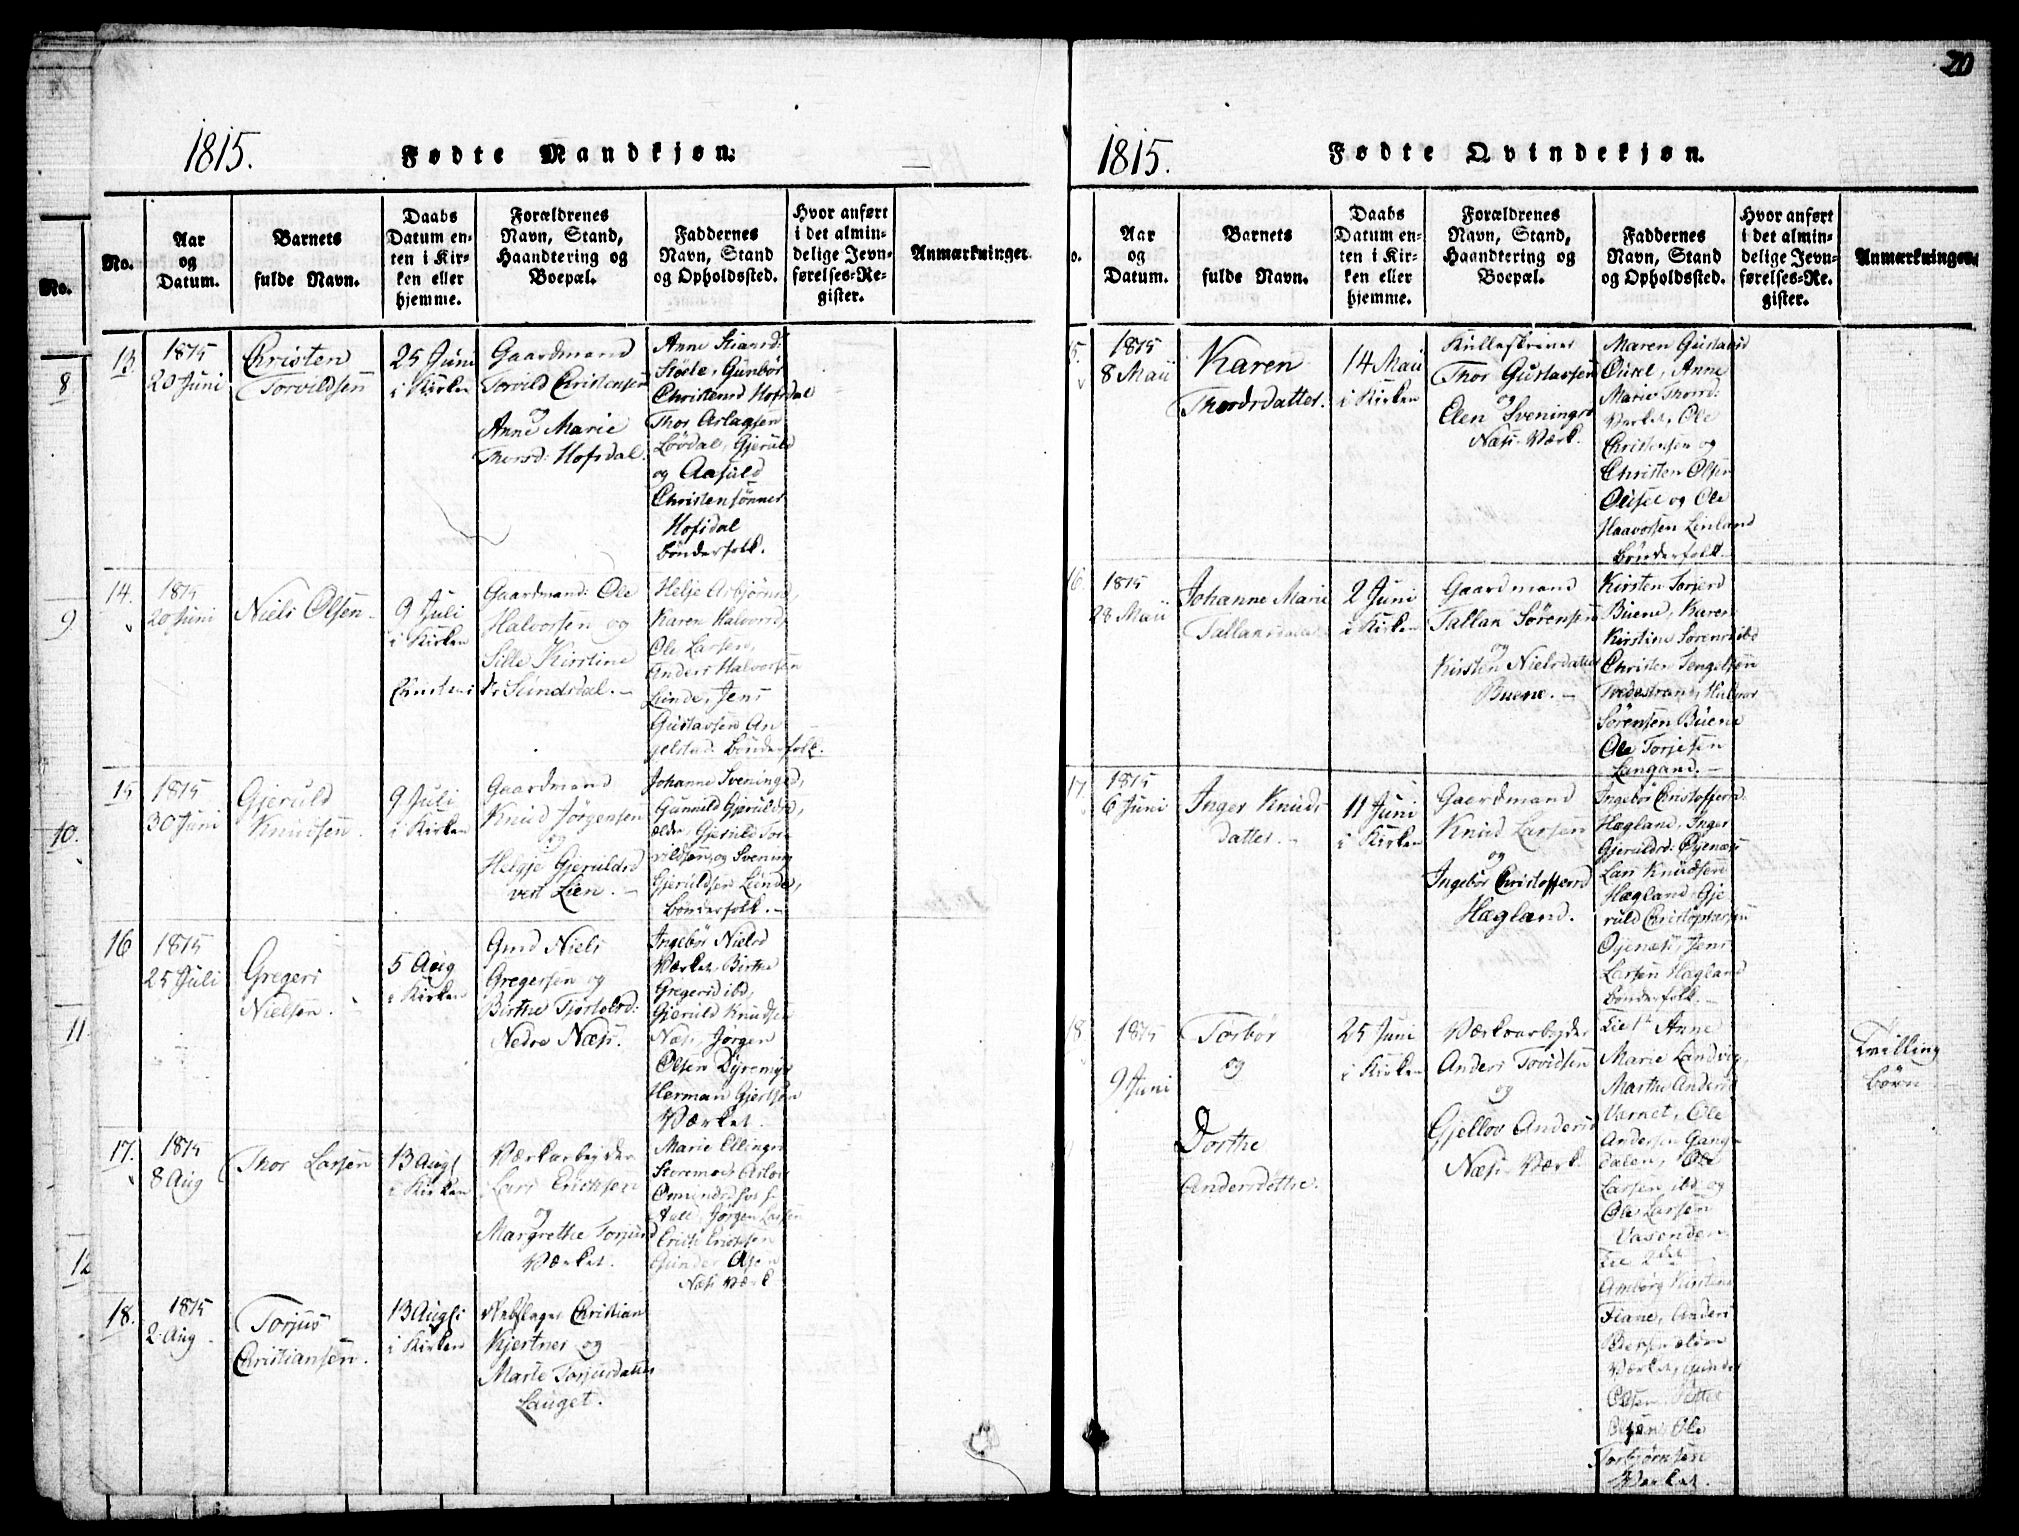 20
1815.
Fødte Mandkjøn.
No.
Aar
og
Datum.
Barnets
fulde Navn.
Daabs
Datum en-
ten i Kir-
ken eller
hjemme.
Forældrenes
Navn, Stand,
Haandtering og
Boepæl.
Faddernes
Navn, Stand
og Opholdssted.
Hvor anført
i det almin-
delige Jevn-
førelses-Re-
gister.
Anmærkninger.
No.
8
9.
10.
11.
12
13.
1815
20 Juni
Christen
Torvildsen
25 Juni
i Kirken
Gaardmand
Torvild Christensen
og
Anne Marie
Thorsd: Hofsdal.
Anne
Støle, Gunbør
Christensd Hofsdal
Thor Aslagsen
Løvdal, Gjeruld
og Aasuld
Christensønner
Hofsdal
bønderfolk.
14.
1815
20 Juni
Niels Olsen.
9 Juli
i Kirken
Gaardmand: Ole
Halvorsen og
Sille Kirstine
Christensd: Sundsdal.
Helje Asbjørnsd,
Karen Halvorsd,
Ole Larsen,
Anders Halvorsen
Lunde, Jens
Gustavsen An
gelstad. bønderfolk.
15
1815
30 Juni
Gjeruld
Knudsen.
9 Juli
i Kirken
Gaardmand
Knud Jørgensen
og
Helgje Gjeruldsd
vest Lien.
Johanne Sveningsd,
Gunnild Gjeruldsd,
ældre, Gjeruld Tor-
vildsen, og Svening
Gjeruldsen Lunde,
bønderfolk.
16
1815
25 Juli
Gregers
Nielsen.
5 Aug
i Kirken
Gmd Niels
Gregersen og
Birthe Tjostolsd:
Nedre Næss.
Ingebør Nielsd
Værket, Birthe
Gregersd ibd,
Gjeruld Knudsen
Næs, Jørgen
Olsen Dyremyr
Herman Gjertsen
Værket.
17.
1815
8 Aug
Thor Larsen
13 Augt
i Kirken
Værkarbejder
Lars Erichsen
og
Margrethe Torjusd
Værket.
Marie Ellingsd
Jørgen Larsen
Erich Erichsen
Gunder Olsen
Næs Værk
18.
1815
2 Aug
Torjus
Christiansen.
13 Augti
i Kirken
Christian
Kjertner og
Marte Torjusdatter
Lauget.
1815.
Fødte Qvindekjøn.
o.
Aar
og
Datum.
Barnets
fulde Navn.
Daabs
Datum en-
ten i Kir-
ken eller
hjemme.
Forældrenes
Navn, Stand,
Haandtering og
Boepæl.
Faddernes
Navn, Stand
og Opholdssted.
Hvor anført
i det almin-
delige Jevn-
førelses-Re-
gister.
Anmærkninger.
5.
1815
8 Maii
Karen
Thorsdatter.
14 Maii
i Kirken
Thor Gustavsen
og
Elen Sveningsd
Næs Værk.
Maren Gustavsd
Anne
Marie Thorsd:
Værket, Ole
Christensen og
Christen Olsen
og Ole
Haavorsen Linland
bønderfolk.
16.
1815
28 Maii
Johanne Marie
Tallaksdatter
2 Juni
i Kirken
Gaardmand
Tallak Sørensen
og
Kirsten Nielsdatter
Buene.
Kirsten Torjersd
Buene, Karen
Kirstine Sørensd ibd
Christen Tengelsen
Tvedestrand, Halvor
Sørensen Buene
Ole Torjesen
Langand.
17
1815
6 Juni
Inger Knuds
datter.
11 Juni
i Kirken
Gaardmand
Knud Larsen
og
Ingebør Christoffersd
Hægland.
Ingebør Christoffersd.
Hægland, Inger
Gjeruldsd: Øjenæs
Lars Knudsen
Hægland, Gje
ruld Christophersen
Øjenæs, Jens
Larsen Hægland
bønderfolk.
18
1815
9 Juni
Torbør
og
Dorthe
Andersdøttre.
25 Juni
i Kirken
Værksarbejder
Anders Tovidsen
og
Gjellov Andersd
Næs Værk.
Til 1ste Anne
Marie Landvig,
Marthe Andersd
Værket, Ole
Andersen Gang-
dalen, Ole
Larsen ibd og
Ole Larsen
Vasenden.
Til 2det
Amborg Kirstine
Fiane, Anders
Pedersen ældre
Værket, Gunder
Olsen, Peter
Olsen, Ole
Torbjørnsen
Værket.
Tvilling
børn